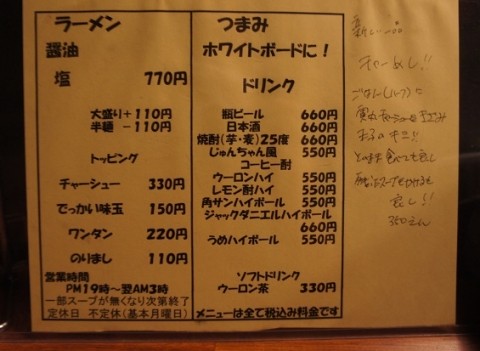 ラーメン
醤油
塩　770円
大盛り＋110円
半麺　－110円
トッピング
チャーシュー　330円
でっかい味玉　150円
ワンタン　220円
のりまし　110円
営業時間
PM19時～翌AM3時
一部スープが無くなり次第終了
定休日　不定休（基本月曜日）
つまみ
ホワイトボードに！
ドリンク
瓶ビール　660円
日本酒　660円
焼酎（芋・麦）25度　660円
じゅんちゃん風　550円
コーヒー酎
ウーロンハイ　550円
レモン酎ハイ　550円
角サンハイボール　550円
ジャックダニエルハイボール
660円
うめハイボール　550円
ソフトドリンク
ウーロン茶　330円
メニューは全て税込み料金です
チャーめし!!
ごはん(ハーフ)に
そのまま食べても良し
良し!!
350えん